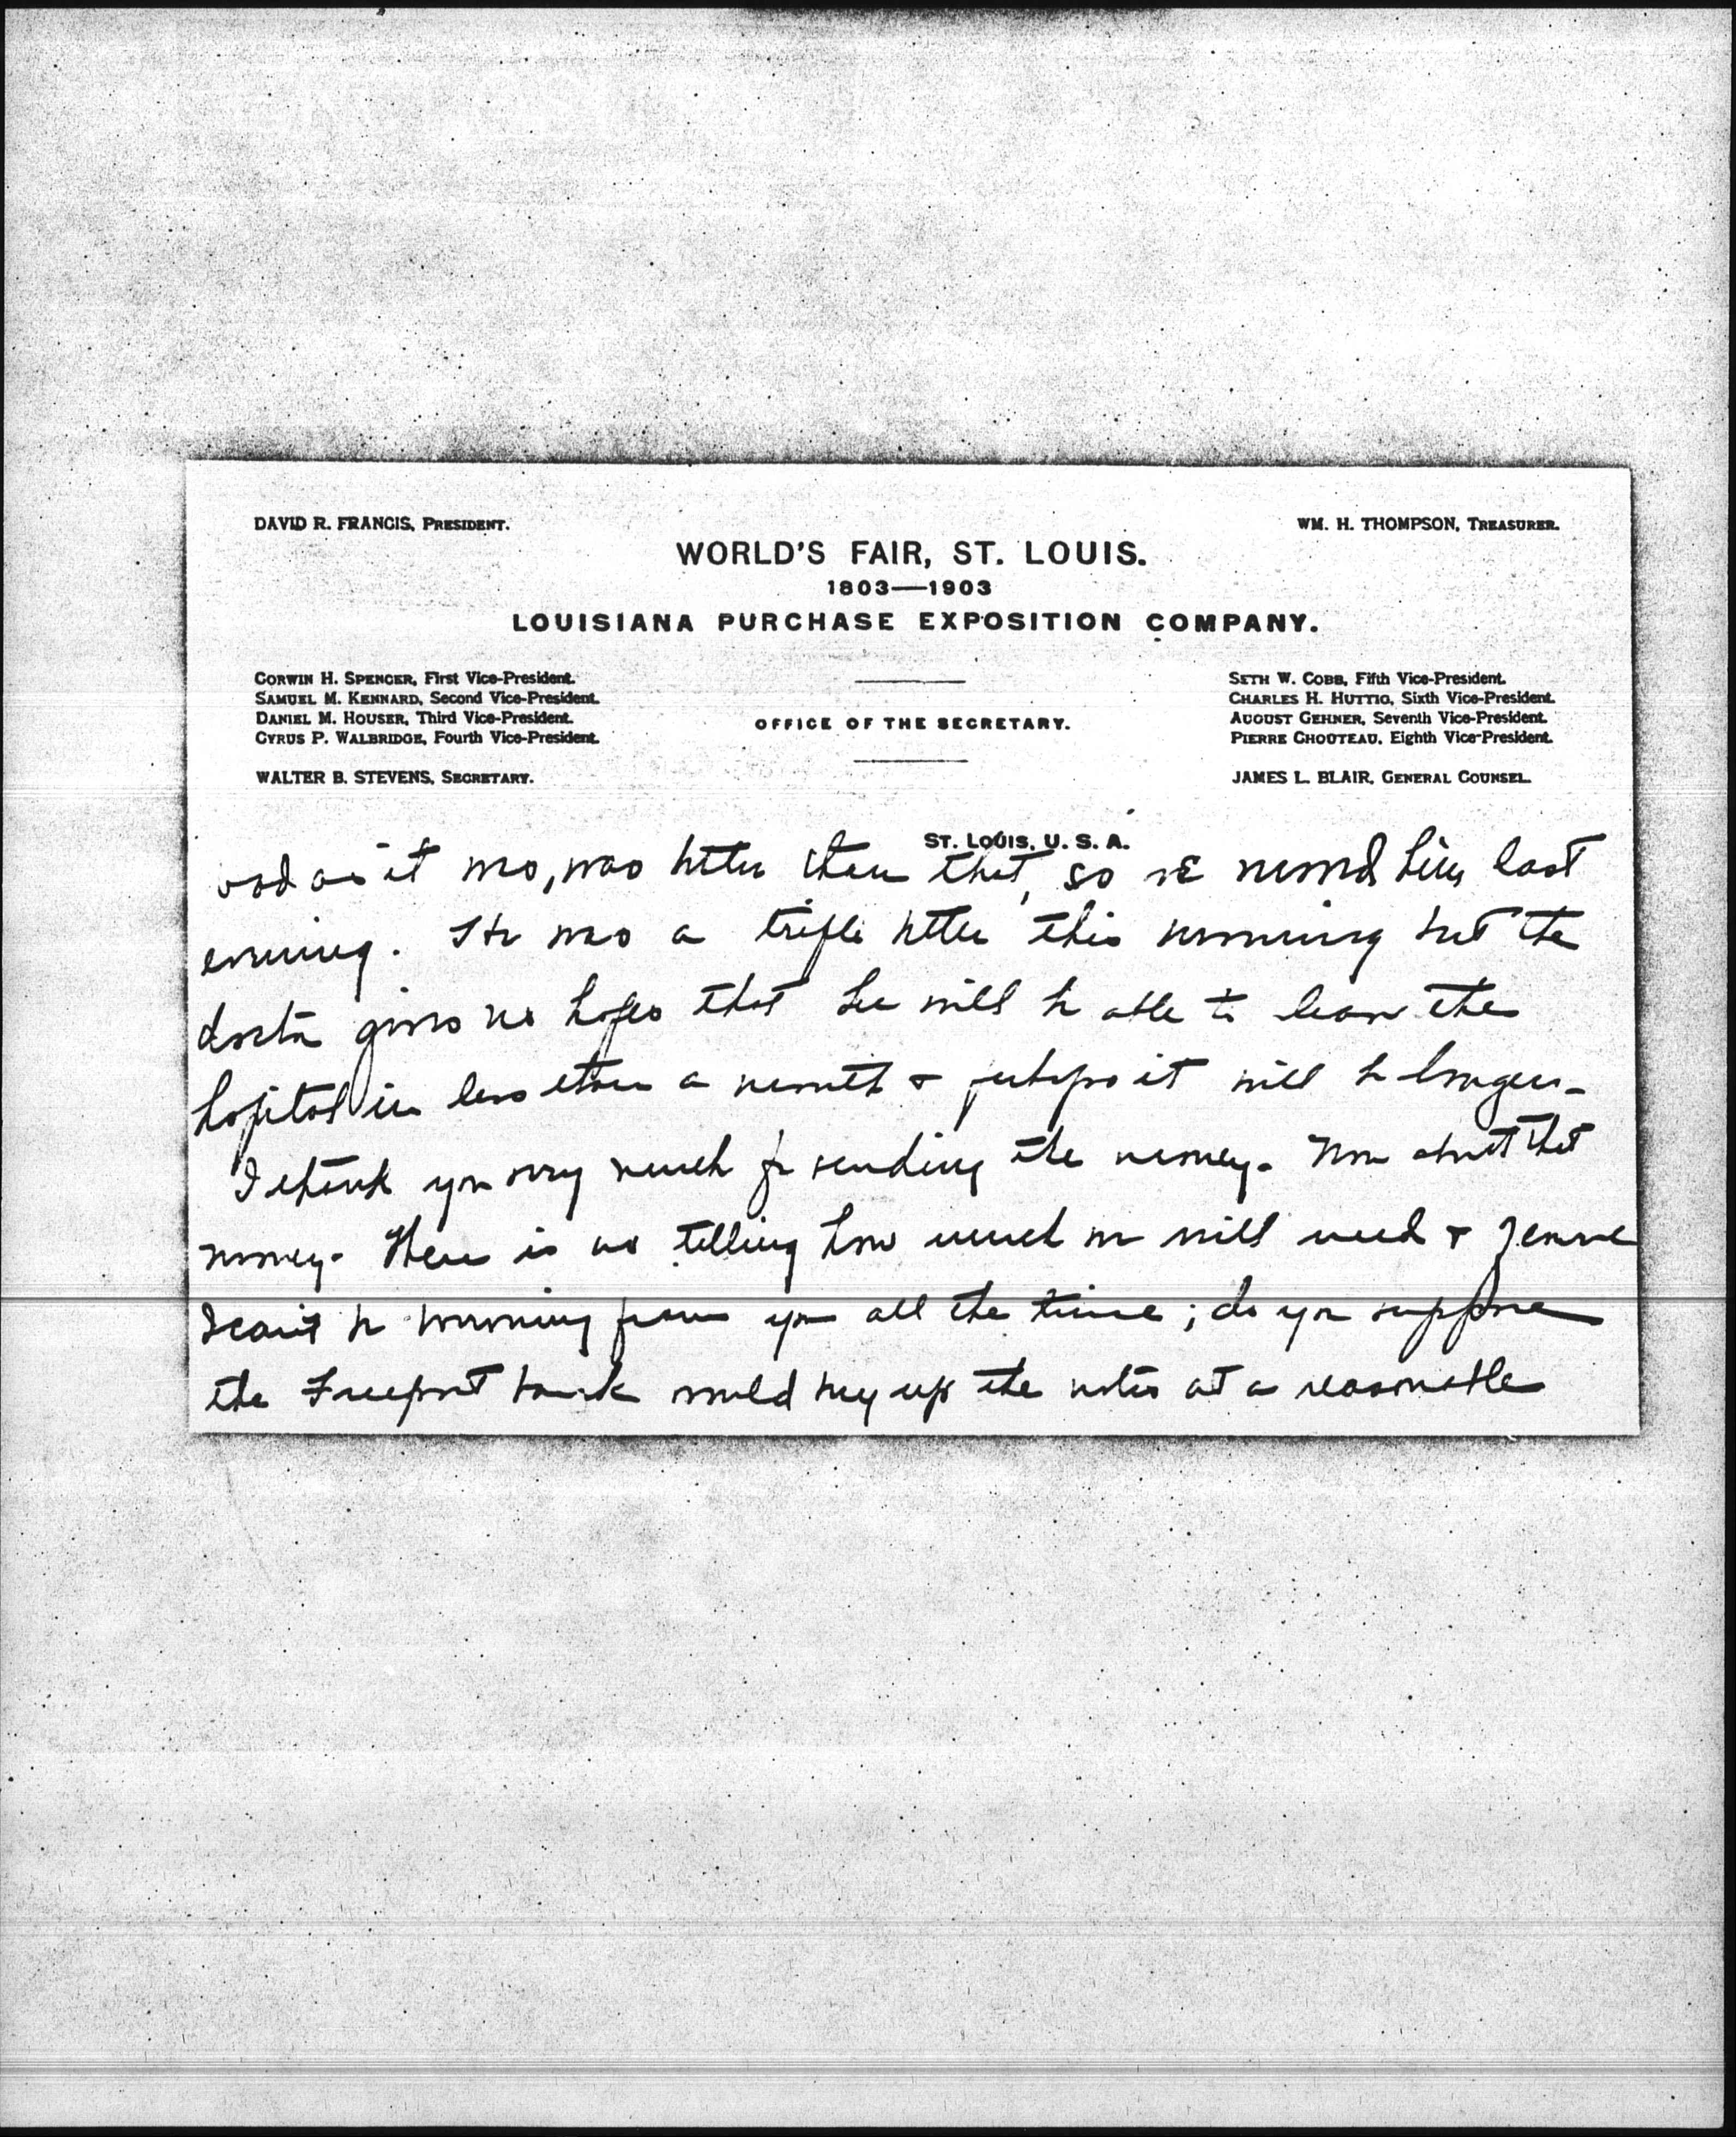 DAVID R. FRANCIS, PRESIDENT.
WM. H. THOMPSON, TREASURER.
WORLD'S FAIR, ST. LOUIS.
1803—1903
LOUISIANA PURCHASE EXPOSITION COMPANY.
CORWIN H. SPENCER, First Vice-President.
SAMUEL M. KENNARD, Second Vice-President.
DANIEL M. HOUSER, Third Vice-President.
CYRUS P. WALBRIDGE, Fourth Vice-President.
WALTER B. STEVENS, SECRETARY.
OFFICE OF THE SECRETARY.
SETH W. COBB, Fifth Vice-President.
CHARLES H. HUTTIG, Sixth Vice-President.
AUGUST GEHNER, Seventh Vice-President.
PIERRE CHOUTEAU, Eighth Vice-President.
JAMES L. BLAIR, GENERAL COUNSEL.
ST. LOUIS, U. S. A.
road as it was, was better than that, so we moved him last
evening. He was a trifle better this morning but the
doctor gives no hopes that he will be able to leave the
hospital in less than a month & perhaps it will be longer-
I thank you very much for sending the money. Now about that
money. There is no telling how much we will need &
I can't be borrowing from you all the time; do you suppose
the Freeport bank would buy up the notes at a reasonable